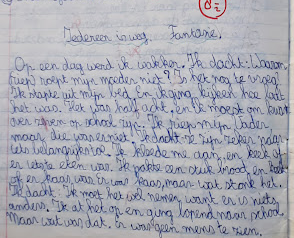 8½
Iedereen is weg. Fantasie.
Op een dag werd ik wakker. Ik dacht: Waarom
roept mijn moeder niet? Is het nog te vroeg?
Ik stapte uit mijn bed. En ik ging kijken hoe laat
het was. Het was half acht, en ik moest om kwart
over zijn. Ik riep mijn vader,
maar die was er niet. Ik dacht: ze zijn zeker naar
iets belangrijks toe. Ik kleedde me aan, en keek of
er iets te eten was. Ik pakte een stuk brood, en keek
of er kaas was. Er was kaas, maar wat stonk het.
Ik dacht: Ik moet het wel nemen want er is niets
anders. Ik at het op en ging lopend naar school.
Maar wat was dat. Er was geen mens te zien.